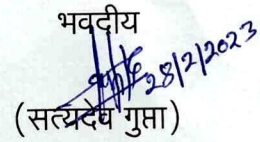 भवदीय
28/2/2023
(सत्यदेव गुप्ता)